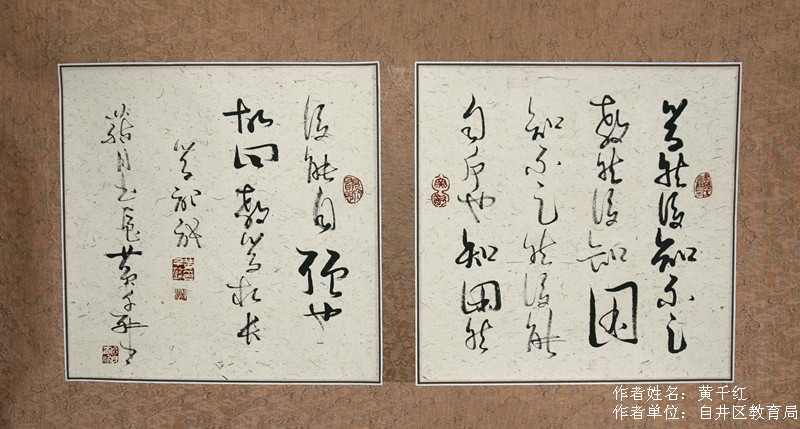 学然後知不足
教然後知困
知不足然後能
自反也知困然
後能自强也
故曰教学相長
黄千红
作者姓名：黄千红
作者单位：自井区教育局